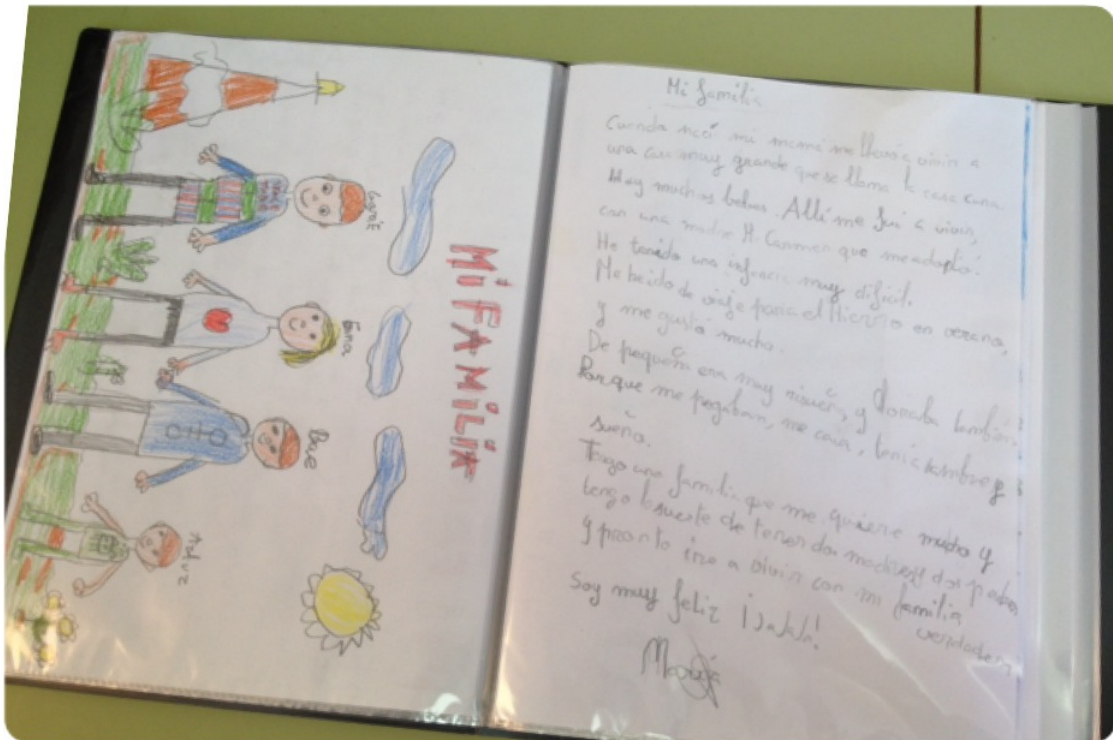 MI FAMILIA
Dave
Mi familia
Cuando nací mi mamá me llevó a vivir a
una casa muy grande que se llama la casa cuna.
Hay muchos bebes. Allí me fui a vivir,
con una madre M. Carmen que me adoptó.
He tenido una infancia muy difícil.
Me he ido de viaje para el Hierro en verano,
y me gustó mucho.
De pequeña era muy risueña, y lloraba también
Porque me pegaban, me caía, tenía hambre y
sueño.
Tengo una familia que me quiere mucho y
tengo la suerte de tener dos madres y dos padres
y pronto iré a vivir con mi familia
verdadera
Soy muy feliz